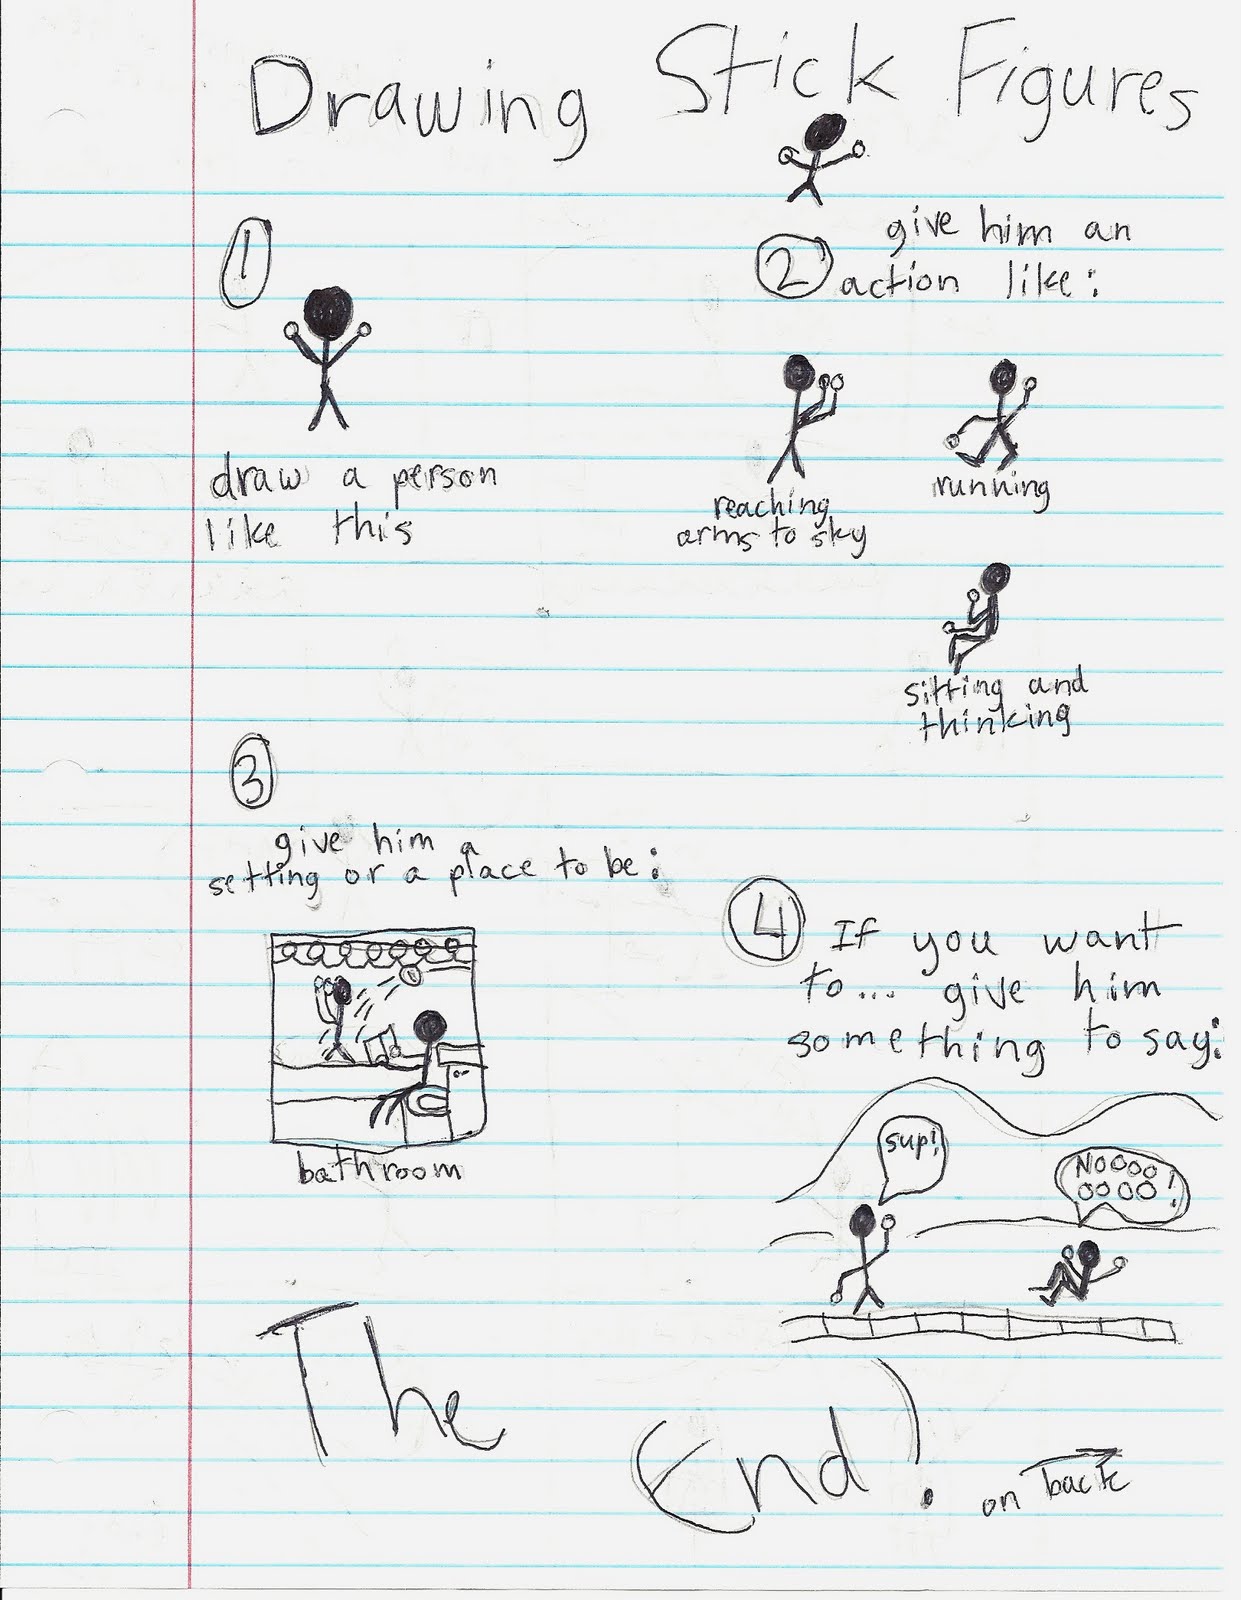 Drawing Stick Figures
1
draw a person
like this
2
give him an
action like:
reaching
arms to sky
running
sitting and
thinking
3
give him a
setting or a place to be:
bathroom
4
If you want
to... give him
something to say:
sup!
NOOOO
OOOO!
The
End!
on back